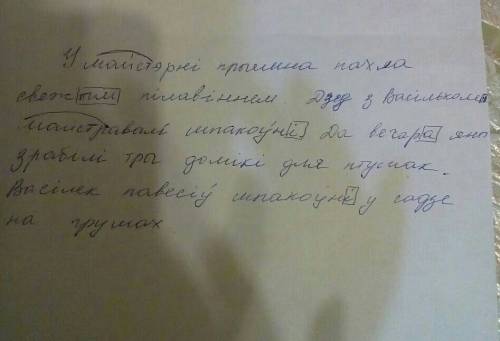 У майстэрні прыемна пахла
свежым пілавіннем Дзед з Васільком
Майстравалі шпакоўні Да вечара яны
зрабілі тры домікі для птушак.
Васілек павесіў шпакоўні у садзе
на грушах